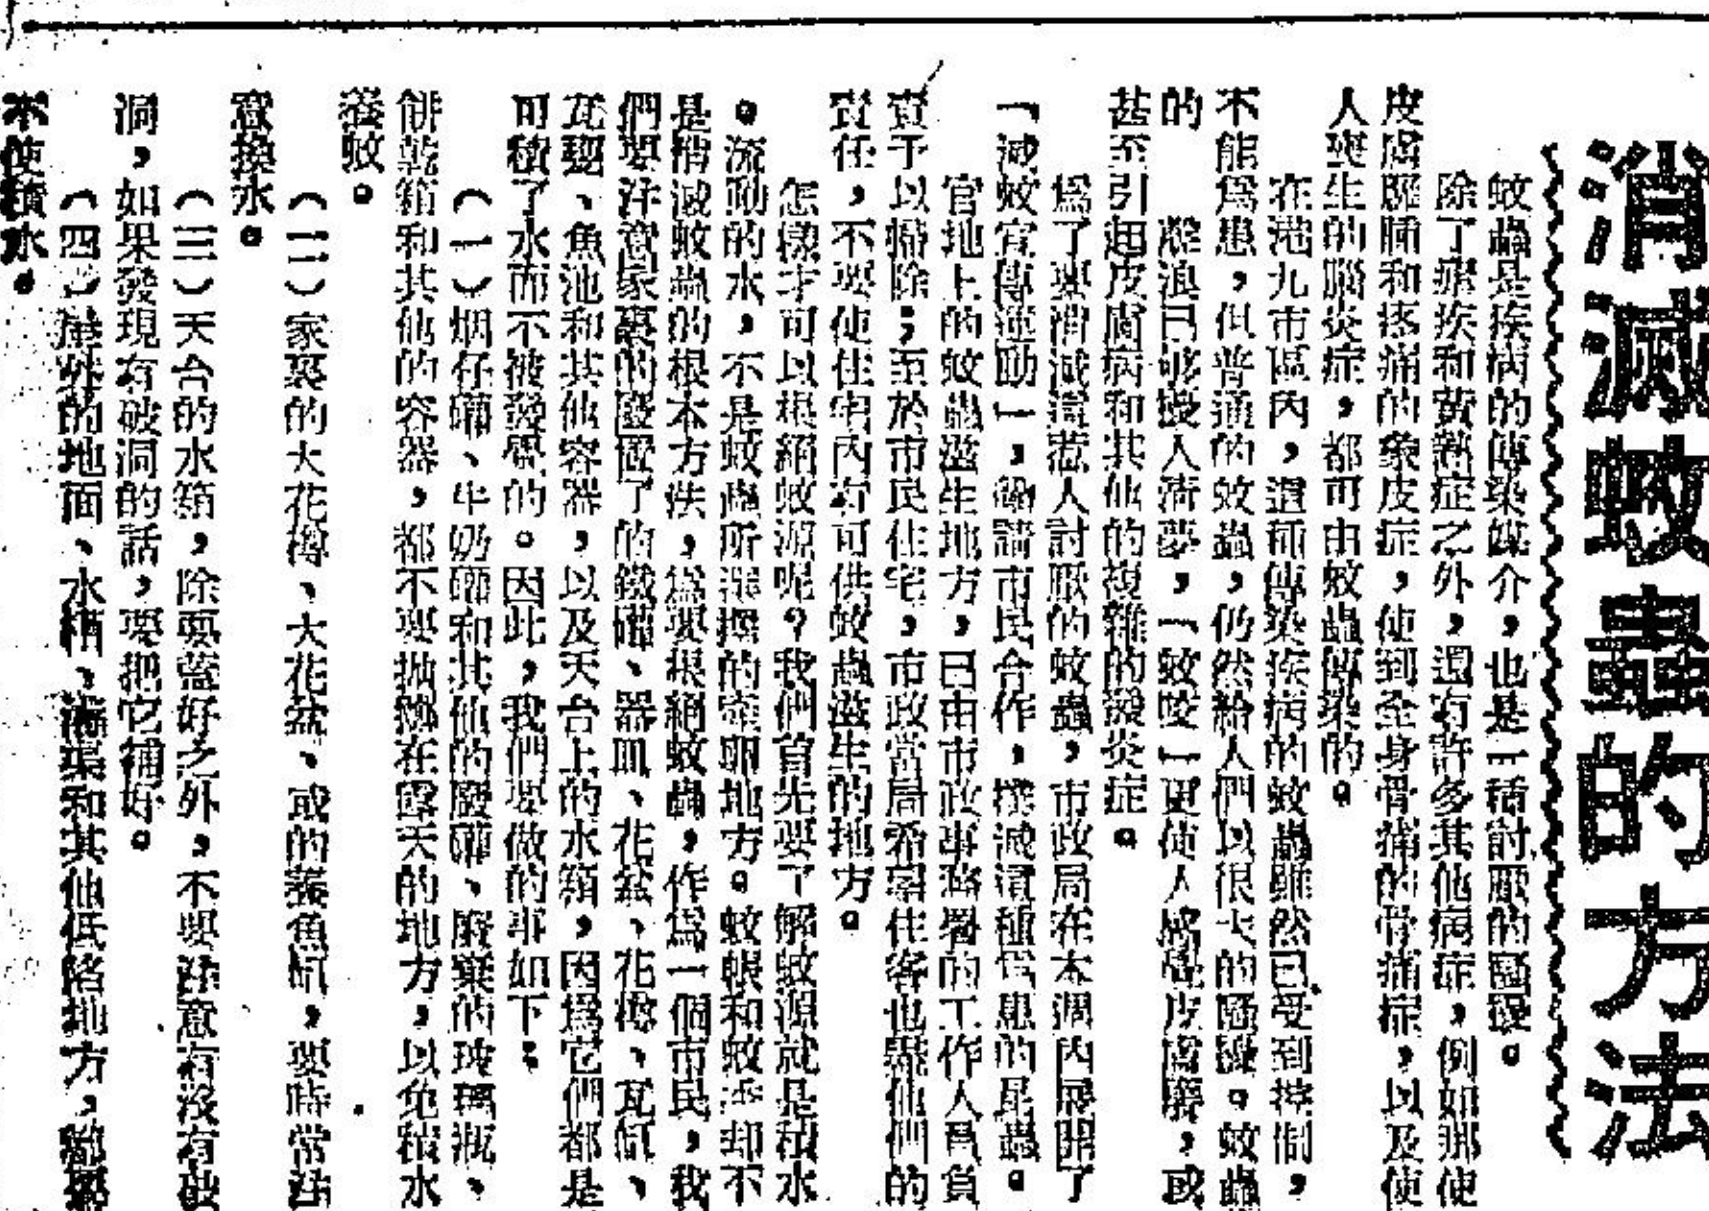 消滅蚊蟲的方法
蚊蟲是疾病的傳染媒介，也是一種討厭的騷擾。
除了瘧疾和黃熱症之外，還有許多其他病症，例如那使
皮膚腫脹和疼痛的象皮症，使到全身骨痛的骨痛症，以及使
人喪生的腦炎症，都可由蚊蟲傳染的。
在港九市區內，這種傳染疾病的蚊蟲雖然已受到控制，
不能為患，但普通的蚊蟲，仍然給人們以很大的騷擾。蚊蟲
的 聲浪已够擾人清夢，「蚊咬」更使人感覺皮膚癢，或
甚至引起皮膚病和其他的複雜的發炎症。
為了要消滅這惹人討厭的蚊蟲，市政局在本週內展開了
「滅蚊宣傳運動」，籲請市民合作，撲滅這種為患的昆蟲。
官地上的蚊蟲滋生地方，已由市政事務署的工作人員負
責予以掃除；至於市民住宅，市政當局希望住客也盡他們的
責任，不要使住宅內有可供蚊蟲滋生的地方。
怎樣才可以根絕蚊源呢？我們首先要了解蚊源就是積水
。流動的水，不是蚊蟲所選擇的產卵地方。蚊帳和蚊香却不
是消滅蚊蟲的根本方法，為要根絕蚊蟲，作為一個市民，我
們要注意家裏的廢置了的鐵罐、器皿、花盆、花樽、瓦缸、
瓦甕、魚池和其他容器，以及天台上的水箱，因為它們都是
可積了水而不被發覺的。因此，我們要做的事如下：
（一）烟仔罐、牛奶罐和其他的廢罐、廢棄的玻璃瓶、
餅乾箱和其他的容器，都不要拋擲在露天的地方，以免積水
養蚊。
（二）家裏的大花樽、大花盆、或的養魚缸，要時常注
意換水。
（三）天台的水箱，除要蓋好之外，不要注意有沒有破
洞，如果發現有破洞的話，要把它補好。
（四）屋外的地面、水槽、溝渠和其他低陷地方，都要
不使積水。